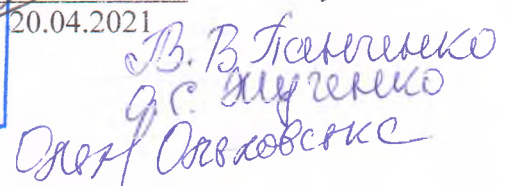 20.04.2021
В. В. Панченко
О. С. Жученко
Ольховська